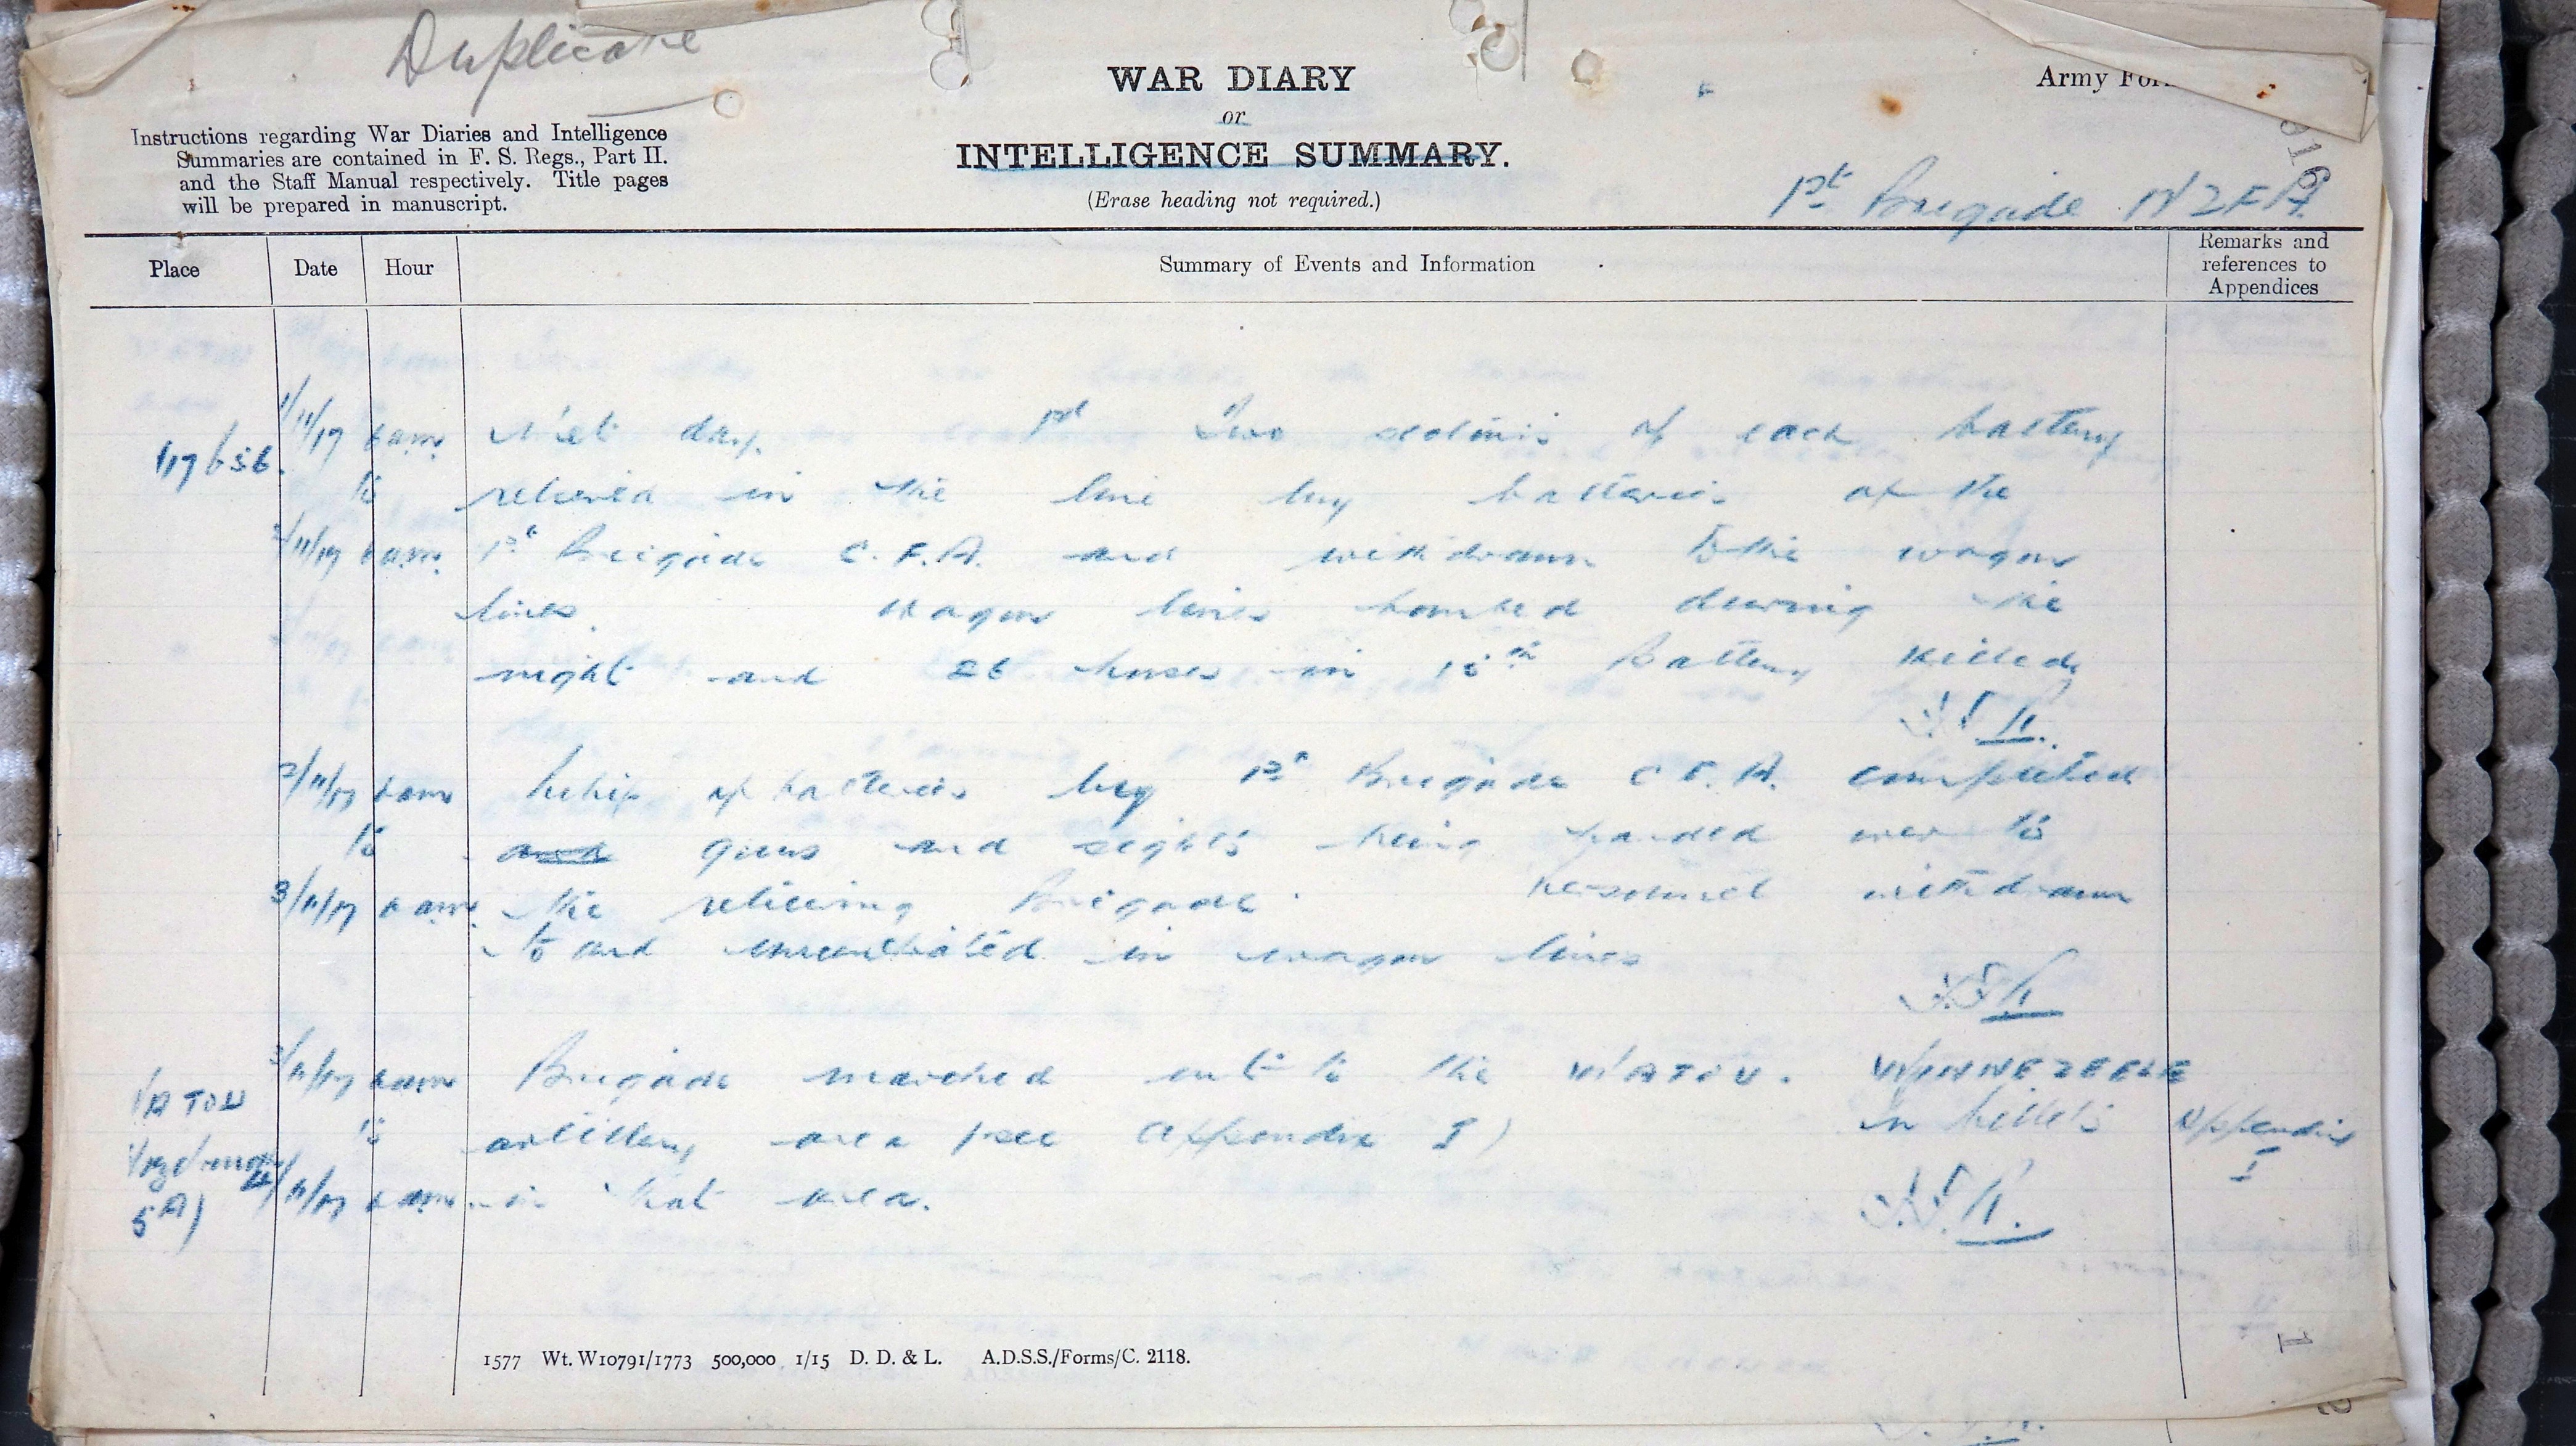 Duplicate
WAR DIARY
or
INTELLIGENCE SUMMARY.
(Erase heading not required.)
Army For
Instructions regarding War Diaries and Intelligence
Summaries are contained in F. S. Regs., Part II.
and the Staff Manual respectively. Title pages
will be prepared in manuscript.
916
1st Brigade NZFA
Place Date Hour Summary of Events and Information Remarks and
references to
Appendices
1/11/17 6 am Quiet day. Two sections of each battery
to relieved in the line by batteries of the
2/11/17 6 am. 1st Brigade C.F.A. and withdrawn to the wagon
lines. Wagon lines bombed during the
night and 26 horses in Battery killed
2/11/17 6 am Relief of batteries by 1st Brigade C F.A. completed
to and guns and sights being handed over to
3/11/17 6 am the relieving Brigade. Personnel withdrawn
to and concentrated in wagon lines
3/11/17 6 am Brigade marched out to the WATOU. WINNEZEELE
to artillery area (see Appendix I) in billets Appendix
I
4/11/17 6 am in that area.
5A)
1577 Wt. W10791/1773 500,000 1/15 D. D. & L. A.D.S.S./Forms/C. 2118.
1
2